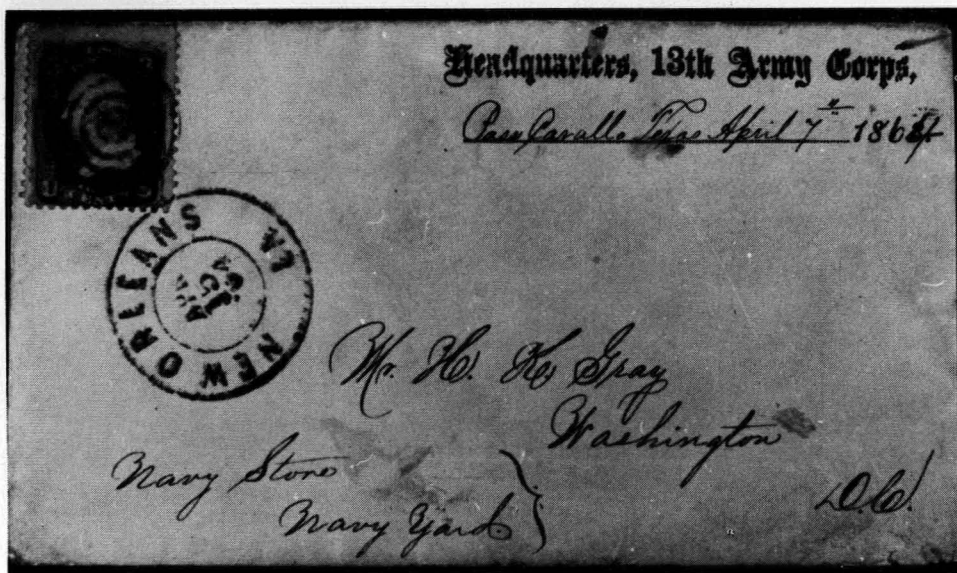 Headquarters, 13th Army Corps,
Pass Cavallo Texas April 7th 1864
NEW ORLEANS LA
APR
15
64
Mr. H. K. Gray
Washington
D.C.
Navy Store
Navy Yard